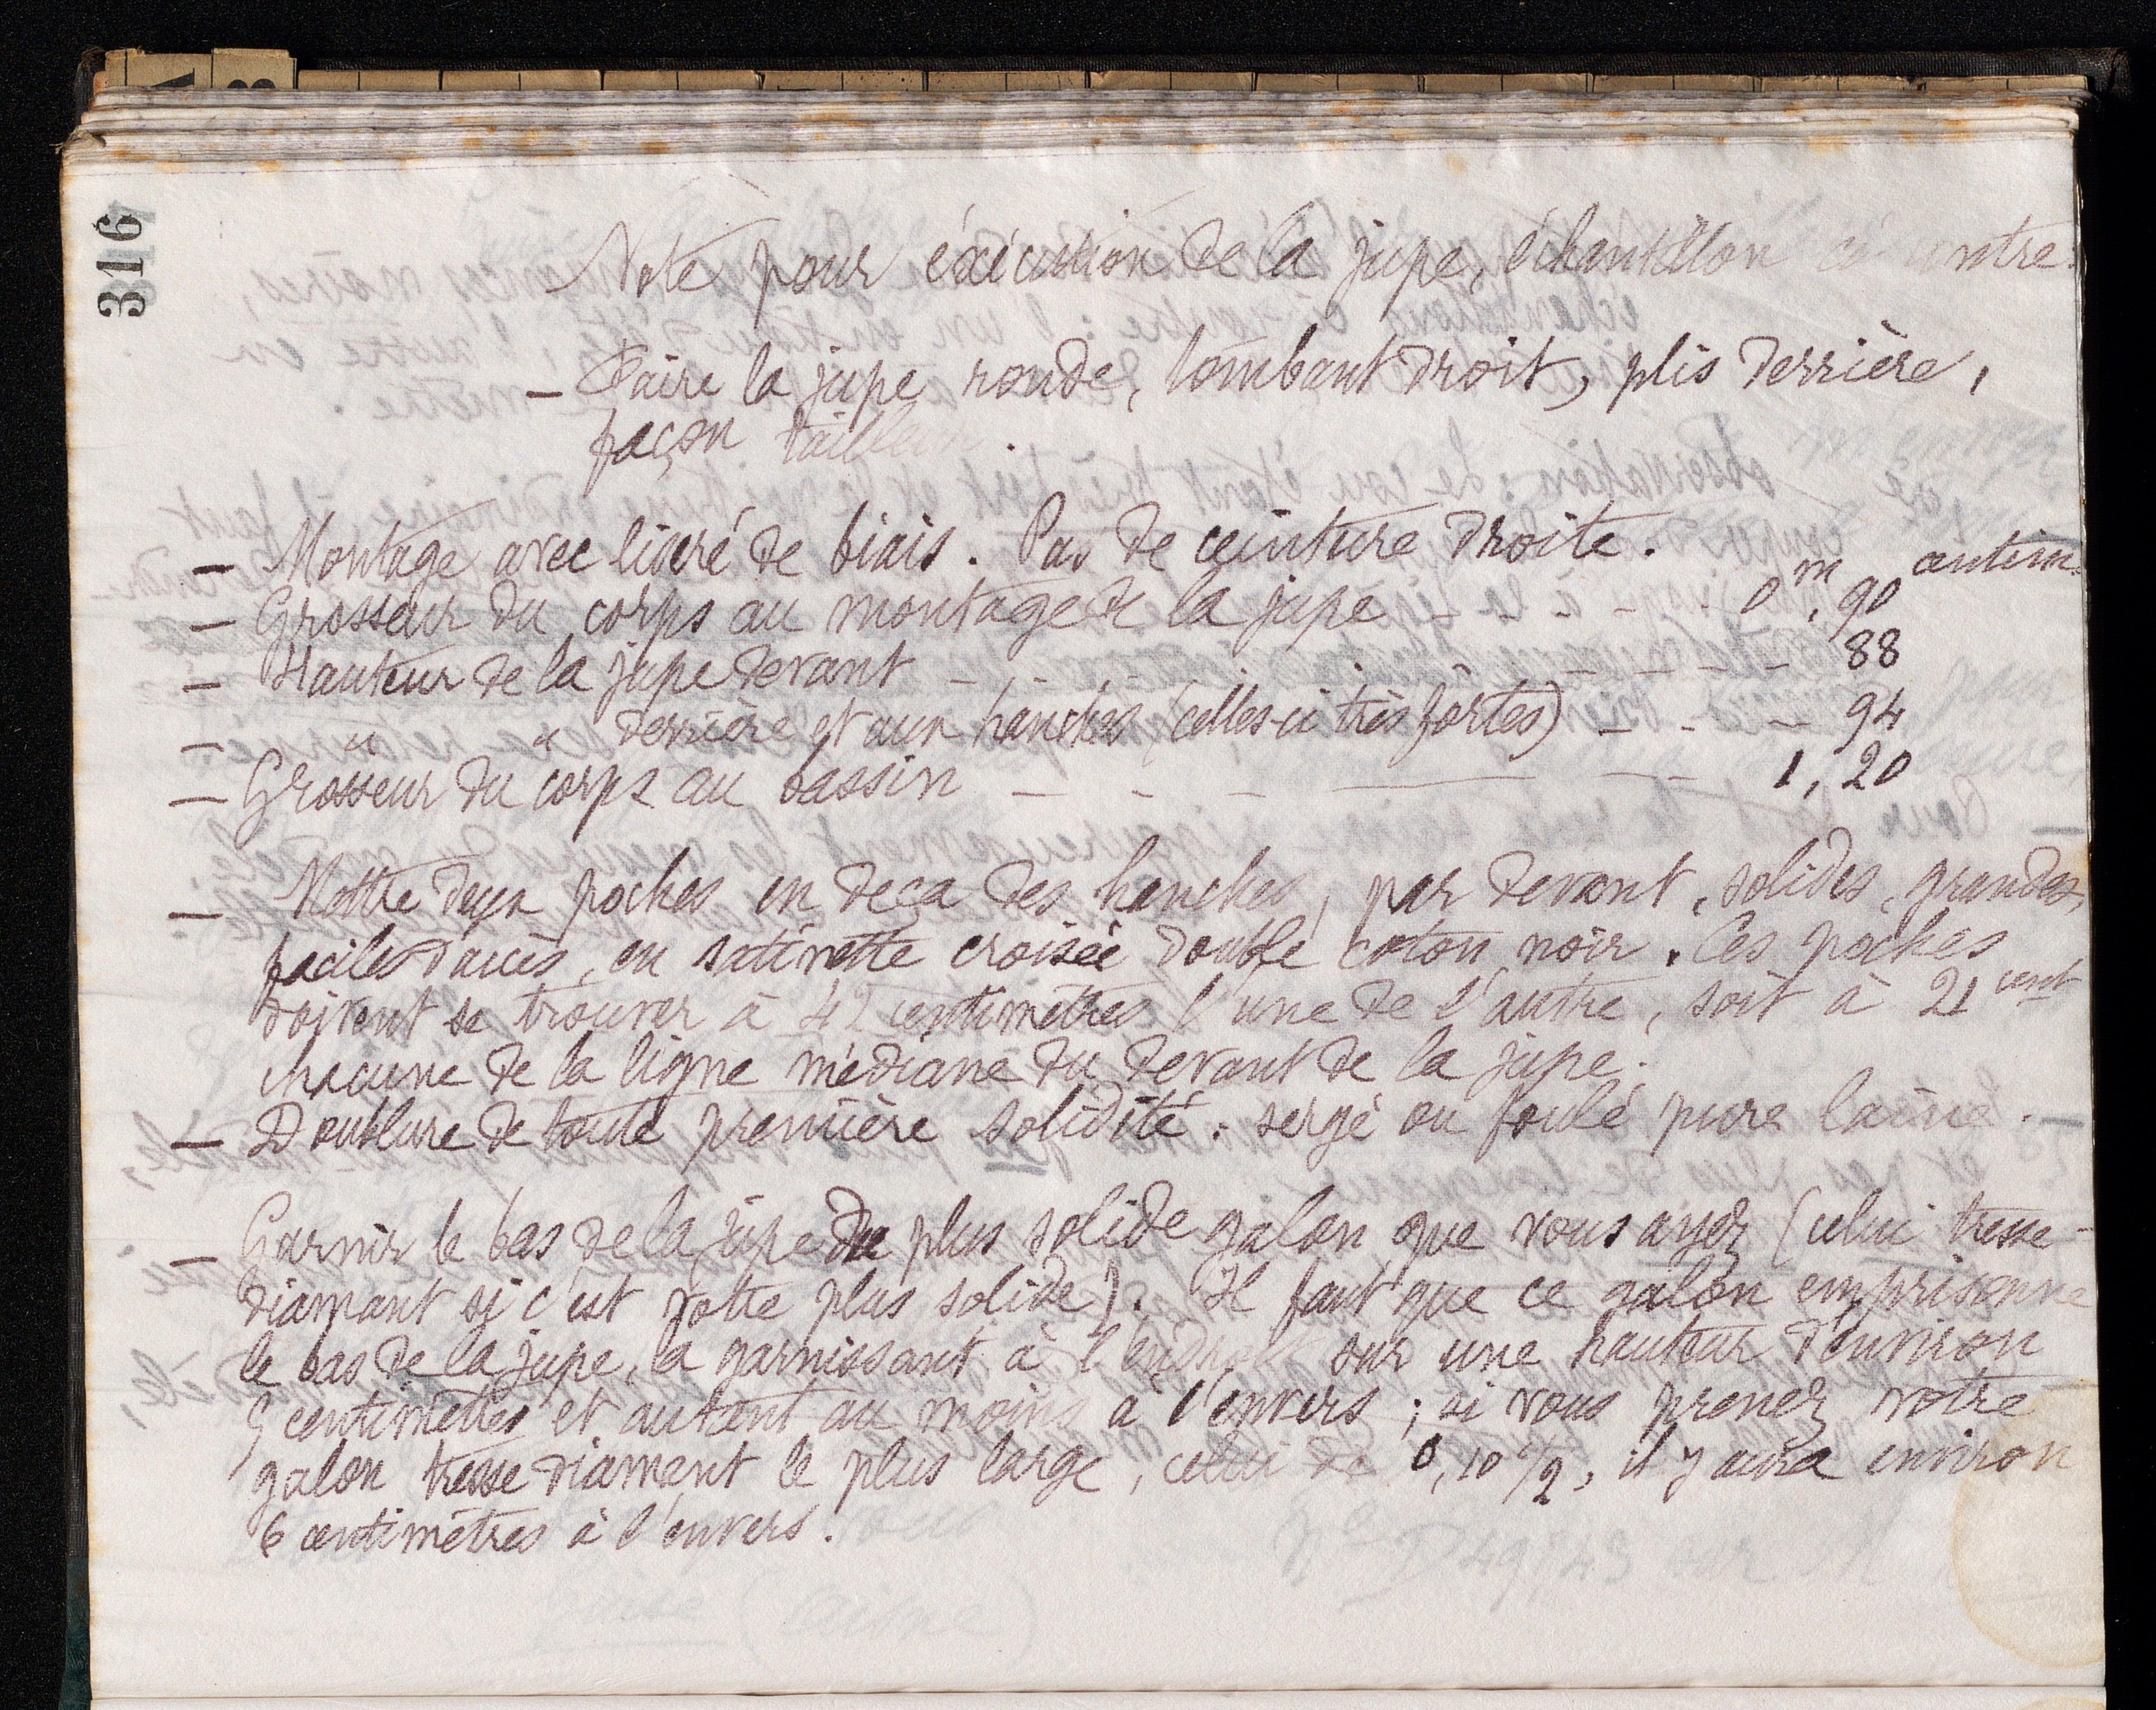 316
Note pour éxécution de la jupe, échantillon ci-contre.
— Faire la jupe ronde, tombant droit, plis derrière,
façon tailleur.
— Montage avec liseré de biais. Pas de ceinture droite.
— Grosseur du corps au montage de la jupe - - - - 0m,90 centim.
— Hauteur de la jupe devant - - - - - - 88
— " " derrière et aux hanches (celles-ci très fortes) - - - 94
— Grosseur du corps au bassin - - - - - 1,20
— Mettre deux poches en deça des hanches, par devant, solides, grandes,
faciles d'accès, en satinette croisée double coton noir. Ces poches
doivent se trouver à 42 centimètres l'une de l'autre, soit à 21 cent
chacune de la ligne médiane du devant de la jupe.
— Doublure de toute première solidité : sergé ou foulé pure laine.
— Garnir le bas de la jupe du plus solide galon que vous ayez (celui tresse-
diamant si c'est votre plus solide). Il faut que ce galon emprisonne
le bas de la jupe, la garnissant à l'endroit sur une hauteur d'environ
5 centimètres et autant au moins à l'envers ; si vous prenez votre
galon tresse diamant le plus large, celui de 0,10 1/2, il y aura environ
6 centimètres à l'envers.